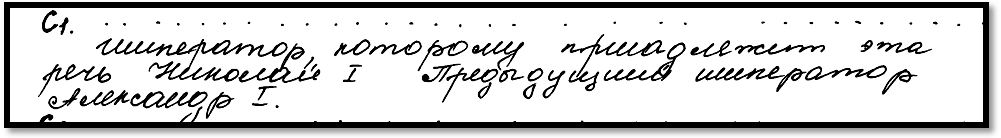 С1.
император, которому принадлежит эта
речь Николай I Предыдущий император
Александр I.